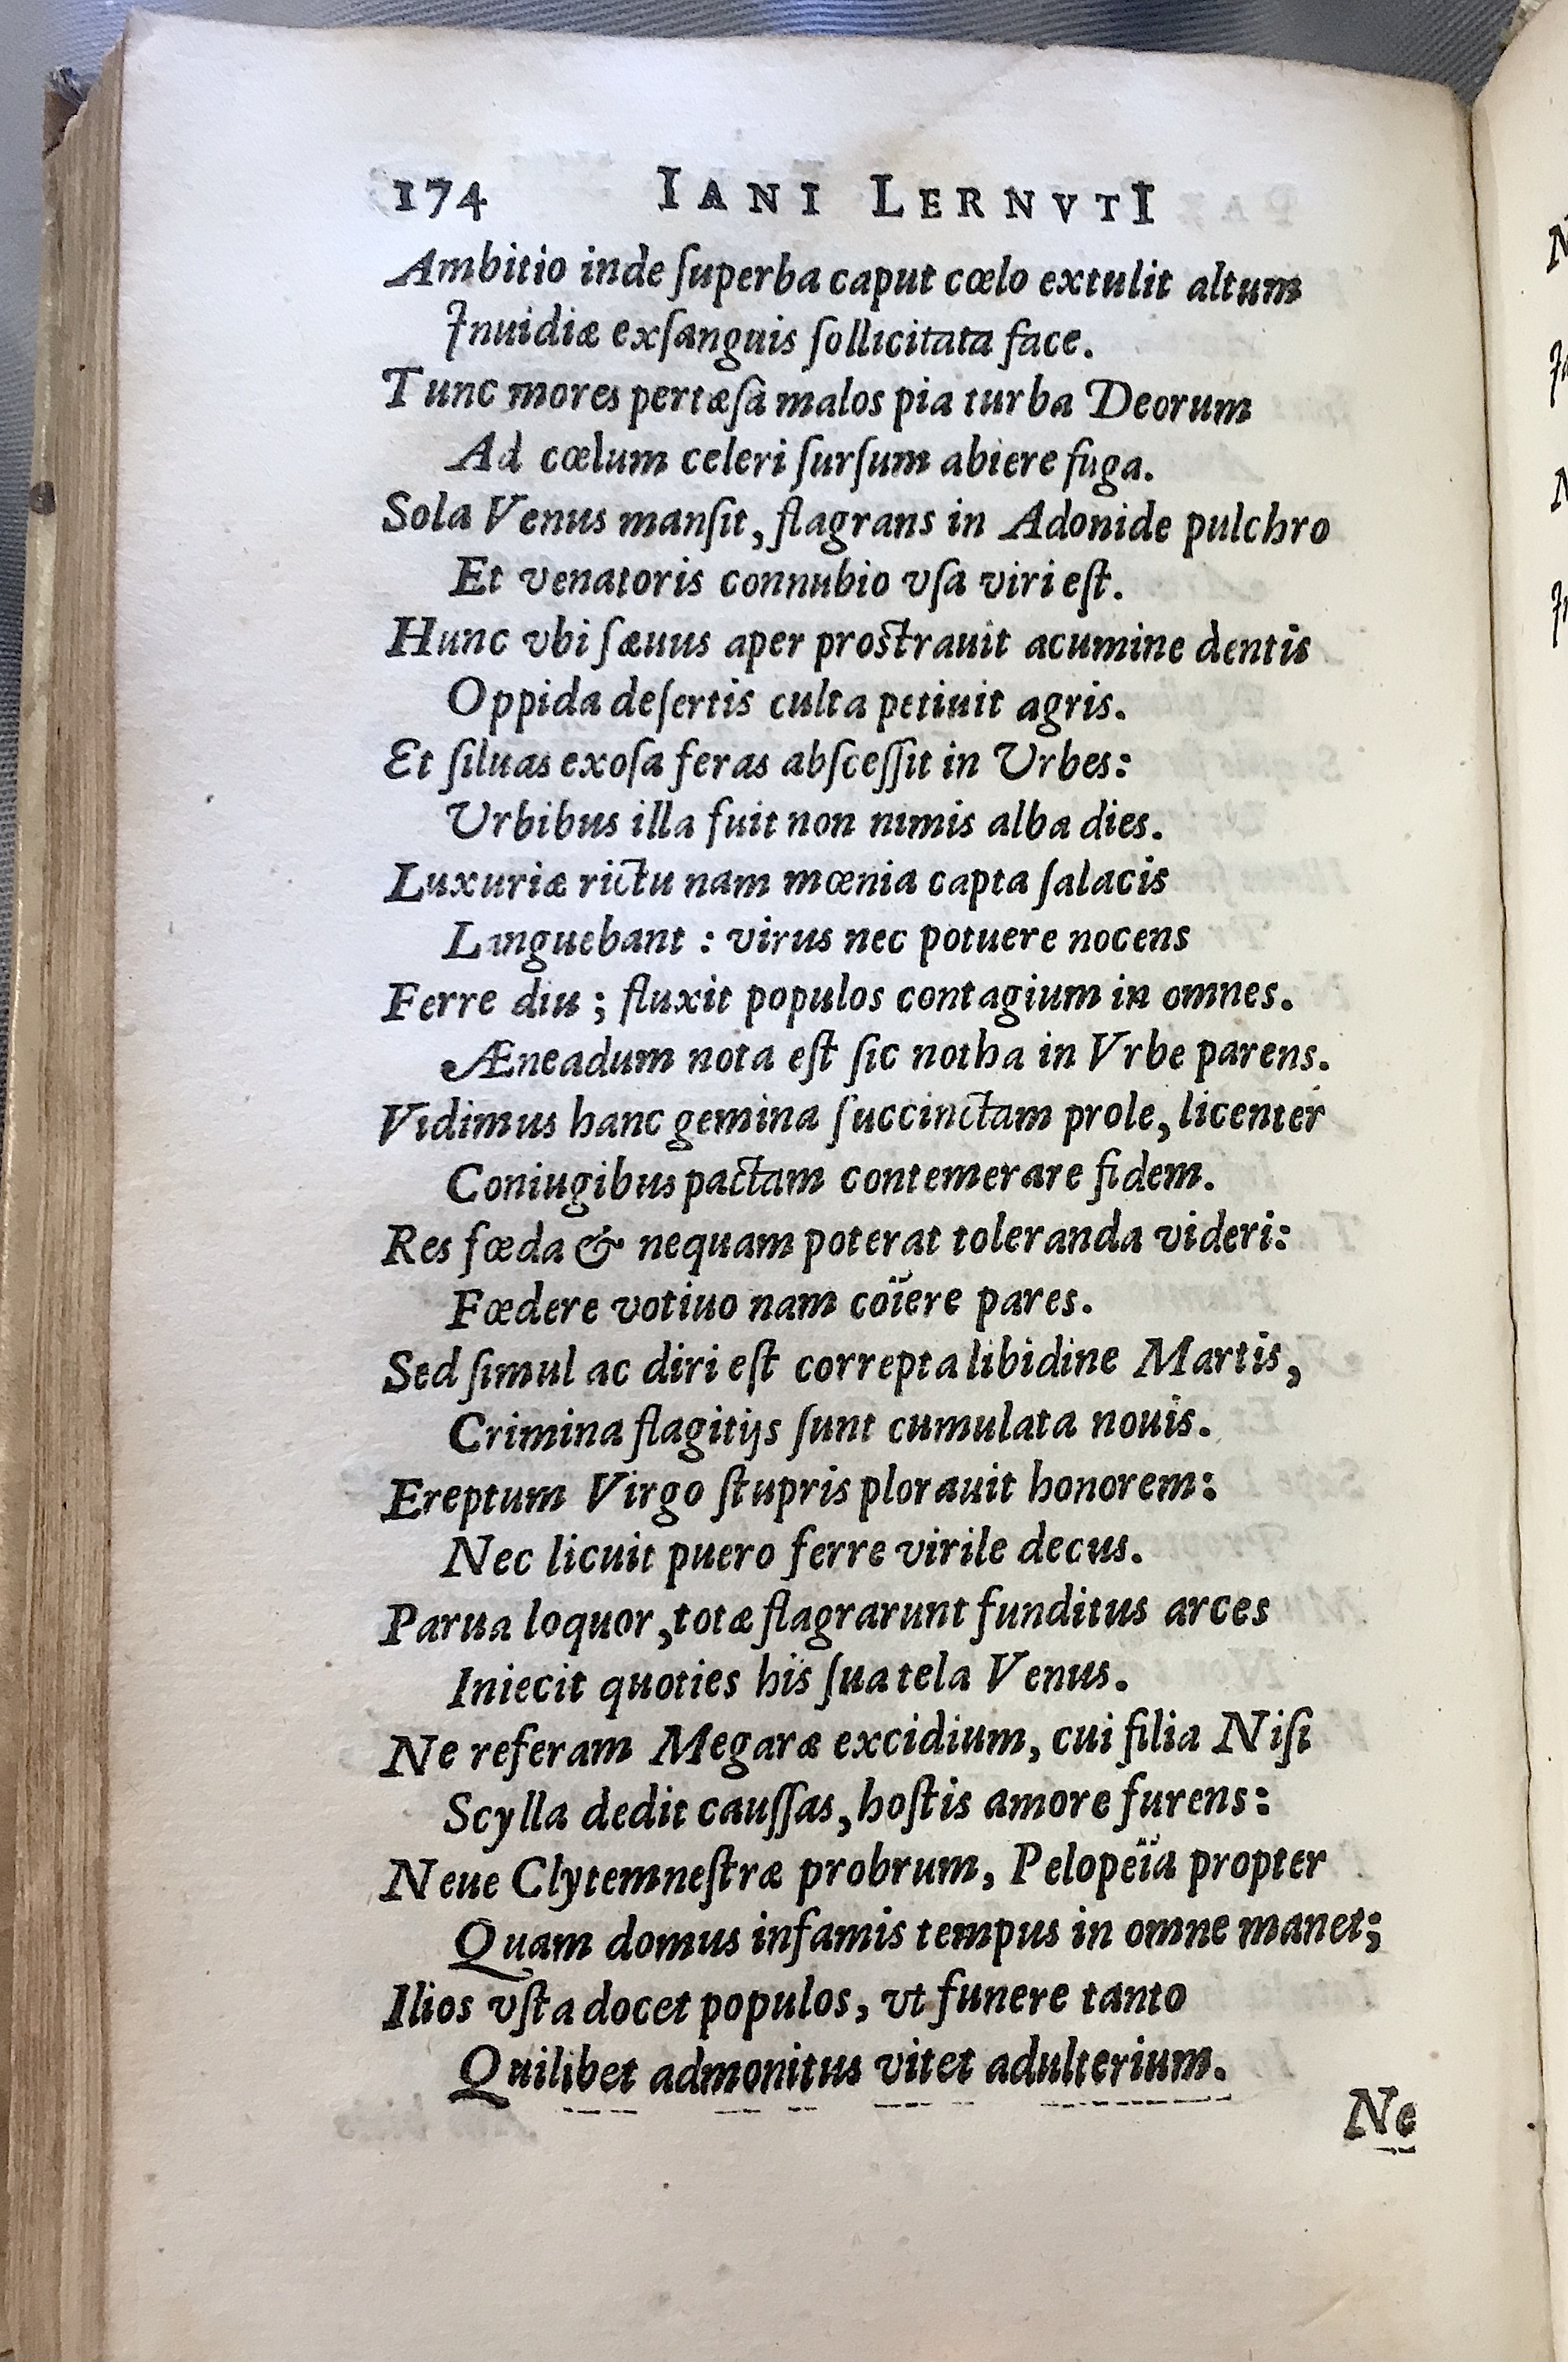 174 IANI LERNVTI
Ambitio inde ſuperba caput cœlo extulit altum
Inuidiæ exſanguis ſollicitata face.
Tunc mores pertæſa malos pia turba Deorum
Ad cœlum celeri ſurſum abiere fuga.
Sola Venus manſit, flagrans in Adonide pulchro
Et venatoris connubio vſa viri eſt.
Hunc vbi ſæuus aper proſtrauit acumine dentis
Oppida deſertis culta petiuit agris.
Et ſiluas exoſa feras abſceſſit in Urbes:
Urbibus illa fuit non nimis alba dies.
Luxuriæ rictu nam mœnia capta ſalacis
Languebant : virus nec potuere nocens
Ferre diu ; fluxit populos contagium in omnes.
Æneadum nota eſt ſic notha in Vrbe parens.
Vidimus hanc gemina ſuccinctam prole, licenter
Coniugibus pactam contemerare fidem.
Res fœda & nequam poterat toleranda videri:
Fœdere votiuo nam coïere pares.
Sed ſimul ac diri eſt correpta libidine Martis,
Crimina flagitijs ſunt cumulata nouis.
Ereptum Virgo ſtupris plorauit honorem:
Nec licuit puero ferre virile decus.
Parua loquor, totæ flagrarunt funditus arces
Iniecit quoties his ſua tela Venus.
Ne referam Megaræ excidium, cui filia Niſi
Scylla dedit cauſſas, hoſtis amore furens:
Neue Clytemneſtræ probrum, Pelopeïa propter
Quam domus infamis tempus in omne manet;
Ilios vſta docet populos, vt funere tanto
Quilibet admonitus vitet adulterium.
Ne